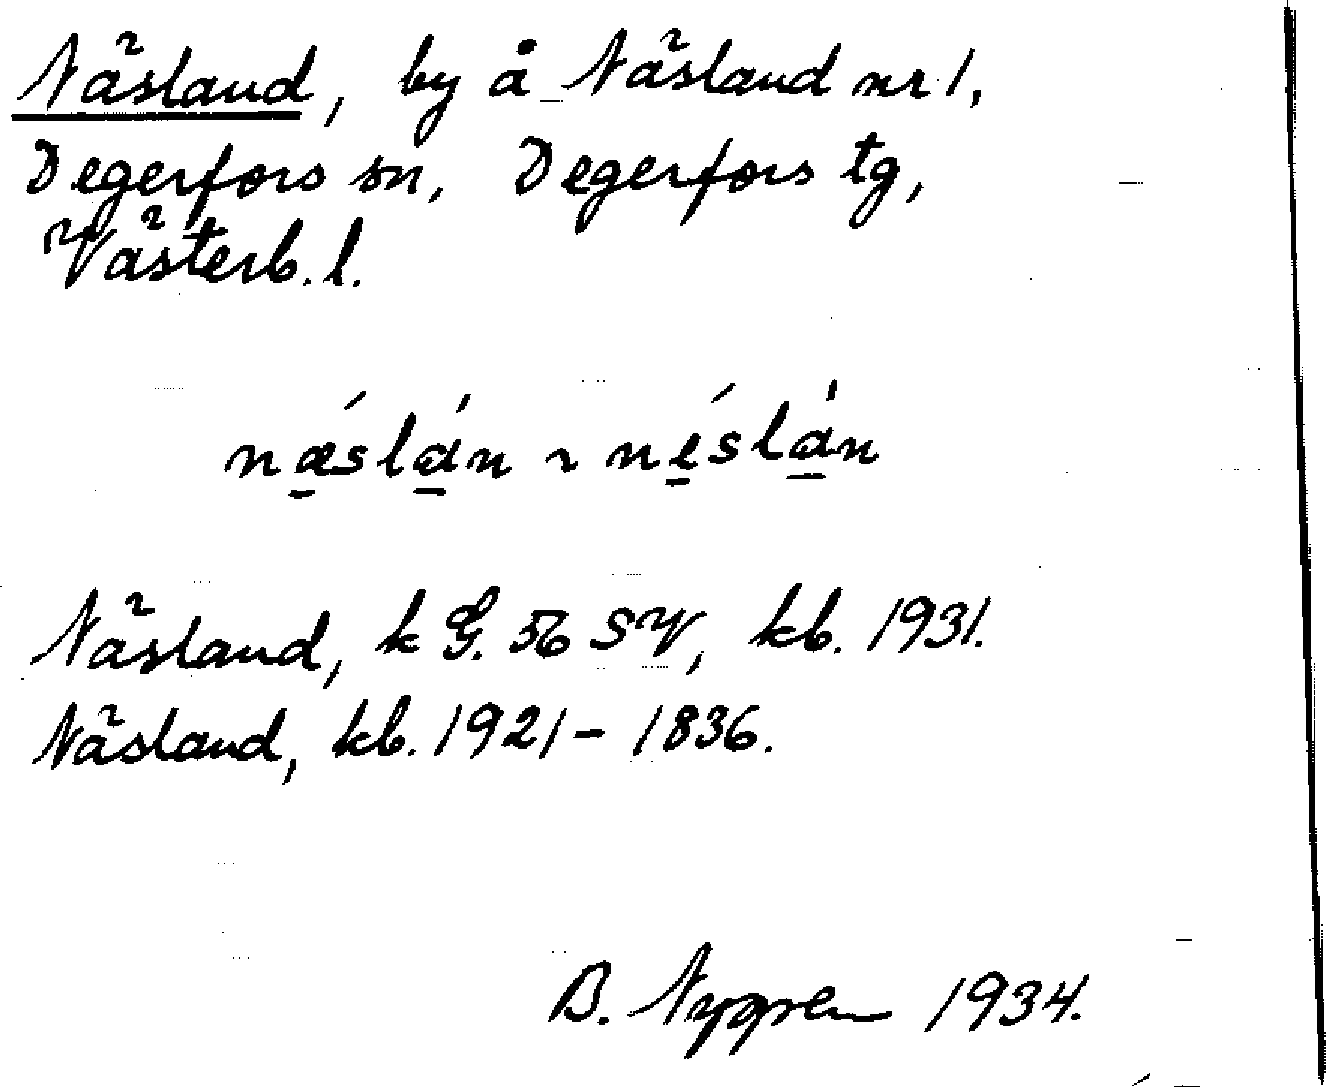 Näsland, by å Näsland nr 1,
Degerfors sn, Degerfors tg,
Västerb. l.
nǽ̱slá̱n ~ né̱slá̱n
Näsland, k G. 56 SV, kb. 1931.
Näsland, kb. 1921-1836.
B. Nygren 1934.